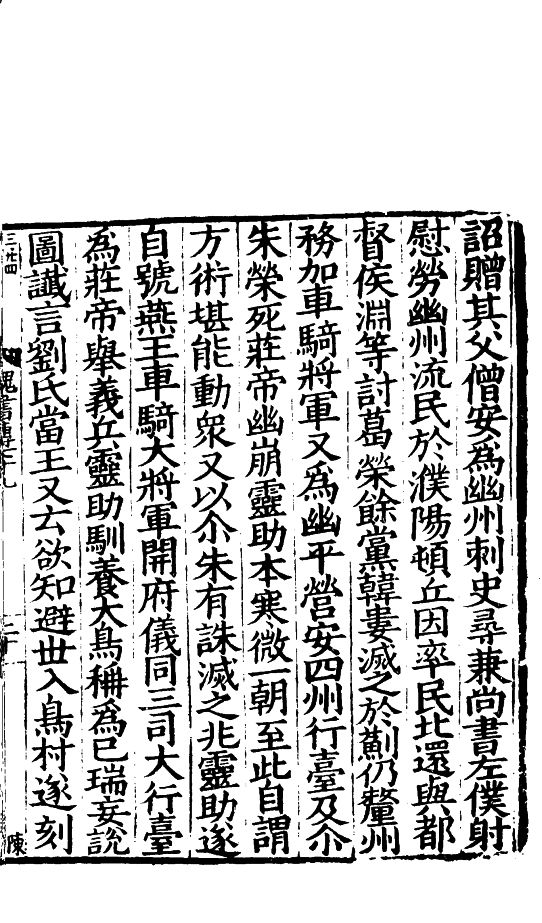 詔贈其父僧安爲幽州刺史尋兼尚書左僕射
慰勞幽州流民於濮陽頓丘因率民北還與都
督侯淵等討葛榮餘黨韓婁滅之於薊仍釐州
務加車騎將軍又爲幽平營安四州行臺及尒
朱榮死莊帝幽崩靈助本寒微一朝至此自謂
方術堪能動衆又以尒朱有誅滅之兆靈助遂
自號燕王車騎大將軍開府儀同三司大行臺
爲莊帝舉義兵靈助馴養大鳥稱爲已瑞妄説
圖讖言劉氏當王又云欲知避世入鳥村遂刻
三廿四
魏書傳七十九
陳